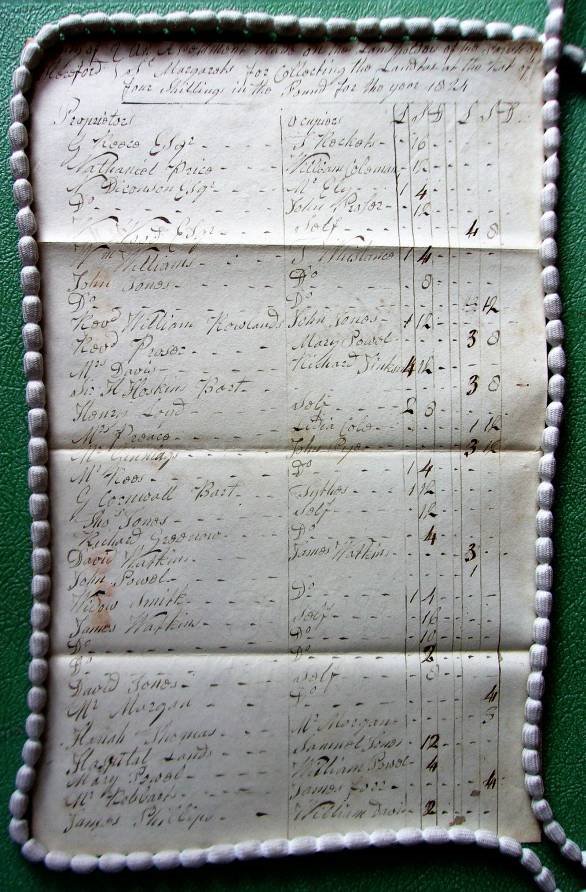 An Assessment made on the Landholders of the Parish of
Hereford St Margarets for Collecting the Landtax at the Rate of
four Shillings in the Pound for the year 1824
Proprietors Occupiers £ S D £ S D
G Reece Esqr J Rickets 16
Nathaneel Price William Coleman 12
Esqr Mr Ely 1 4
Do John Prosser 12
Esqr Self 4 8
Wm Williams J 1 4
John Jones Do 8
Do Do 12
Revd William Rowlands John Jones 12
Revd Proser Mary Powel 3 8
Mrs Davis Richard 4 12
Sir H Hoskins Bart 3 8
Henry Self 2 8
Mrs Preece Lidia Cole 1 12
Mr John Pye 3 12
Mr Rees Do 1 4
G Cornwall Bart Sythes 1 12
Thos Jones Self 12
Richard Greenow Do 4
David Watkins James Watkins 3
John Powel 1
Widow Smith Do 1 4
James Watkins Self 16
Do Do 10
Do Do 2
David Jones Self 8
Mr Morgan Do 4
Hanah Thomas Mr Morgan 3
Hospital Lands Samuel Jones 12
Mary Powel William Powel 4
Mr Hobbart James 4
James Phillips William Davis 2